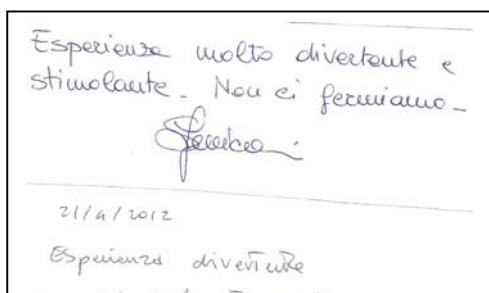 Esperienza molto divertente e
stimolante. Non ci fermiamo.
21/4/2012
Esperienza divertente